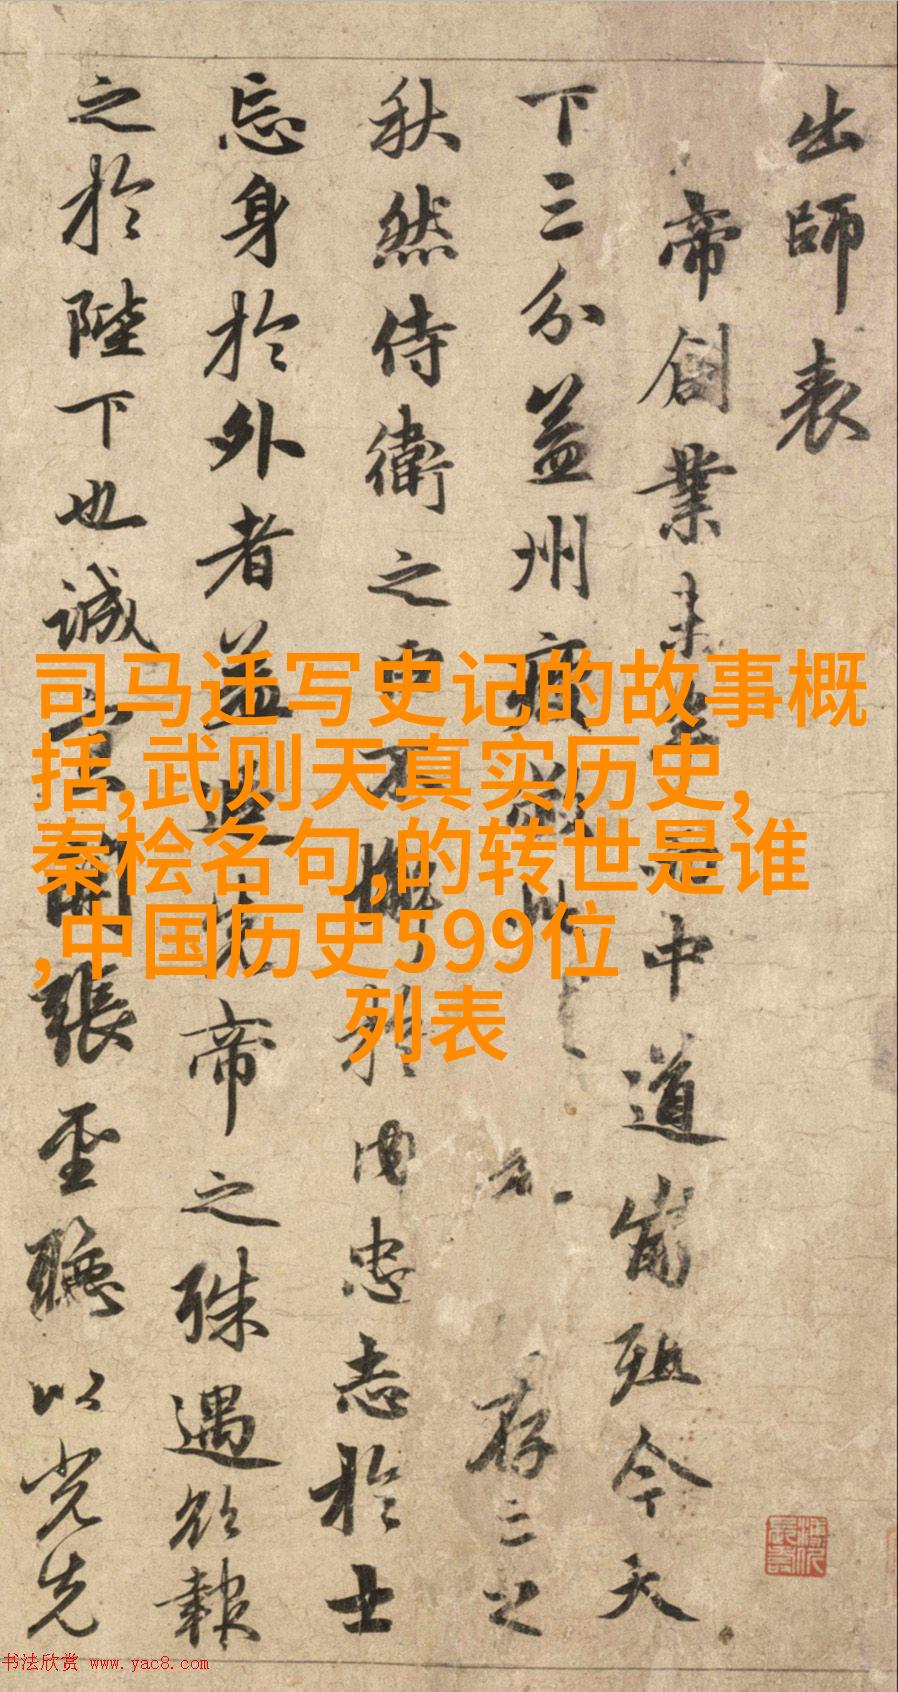 出師表
帝創業未中道崩殂今天
下三分益州疲敝存亡之
秋然侍衛之臣不懈於內忠志於士
忘身於外者蓋追先帝之殊遇欲報
之於陛下也誠宜開張聖聽以光先
司马迁写史记的故事概
括,武则天真实历史,
秦桧名句,的转世是谁
,中国历史599位
列表
书法欣赏 www.yac8.com